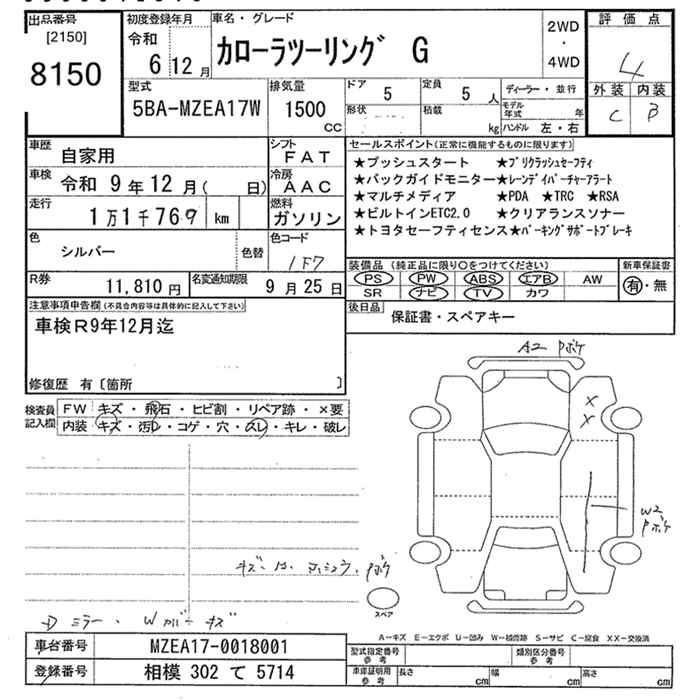 出品番号
[2150]
8150
初度登録年月
令和
6 12 月
車名・グレード
カローラツーリング G
2WD
・
4WD
評価点
4
外装 内装
C B
型式
5BA-MZEA17W
排気量
1500
CC
ドア 5
定員 5 人
形状
積載 kg
ディーラー・並行
モデル年式 年
ハンドル 左・右
車歴
自家用
シフト
FAT
車検 令和 9年12月( 日)
冷房
AAC
走行
1万1千769 km
燃料
ガソリン
色
シルバー
色替
色コード
1F7
R券
11,810 円
名変通知期限
9 月 25 日
セールスポイント(正常に機能するものに限ります)
★プッシュスタート ★プリクラッシュセーフティ
★バックガイドモニター★レーンディパーチャーアラート
★マルチメディア ★PDA ★TRC ★RSA
★ビルトインETC2.0 ★クリアランスソナー
★トヨタセーフティセンス★パーキングサポートブレーキ
装備品(純正品に限り○をつけてください)
PS PW ABS エアB AW
SR ナビ TV カワ
新車保証書
有・無
後日品
保証書・スペアキー
注意事項申告欄(不具合内容等は具体的に記入して下さい)
車検R9年12月迄
修復歴 有〔箇所 〕
検査員
記入欄
FW キズ・飛石・ヒビ割・リペア跡・×要
内装 キズ・汚レ・コゲ・穴・スレ・キレ・破レ
A2 Pボケ
X
X
W2
Pボケ
Pボケ
ミラー・Wカバーキズ
スペア
A-キズ E-エクボ U-凹み W-補修跡 S-サビ C-腐食 XX-交換済
車台番号 MZEA17-0018001
登録番号 相模 302 て 5714
型式指定番号
参考
類別区分番号
参考
車庫証明用
参考
長さ cm
幅 cm
高さ cm